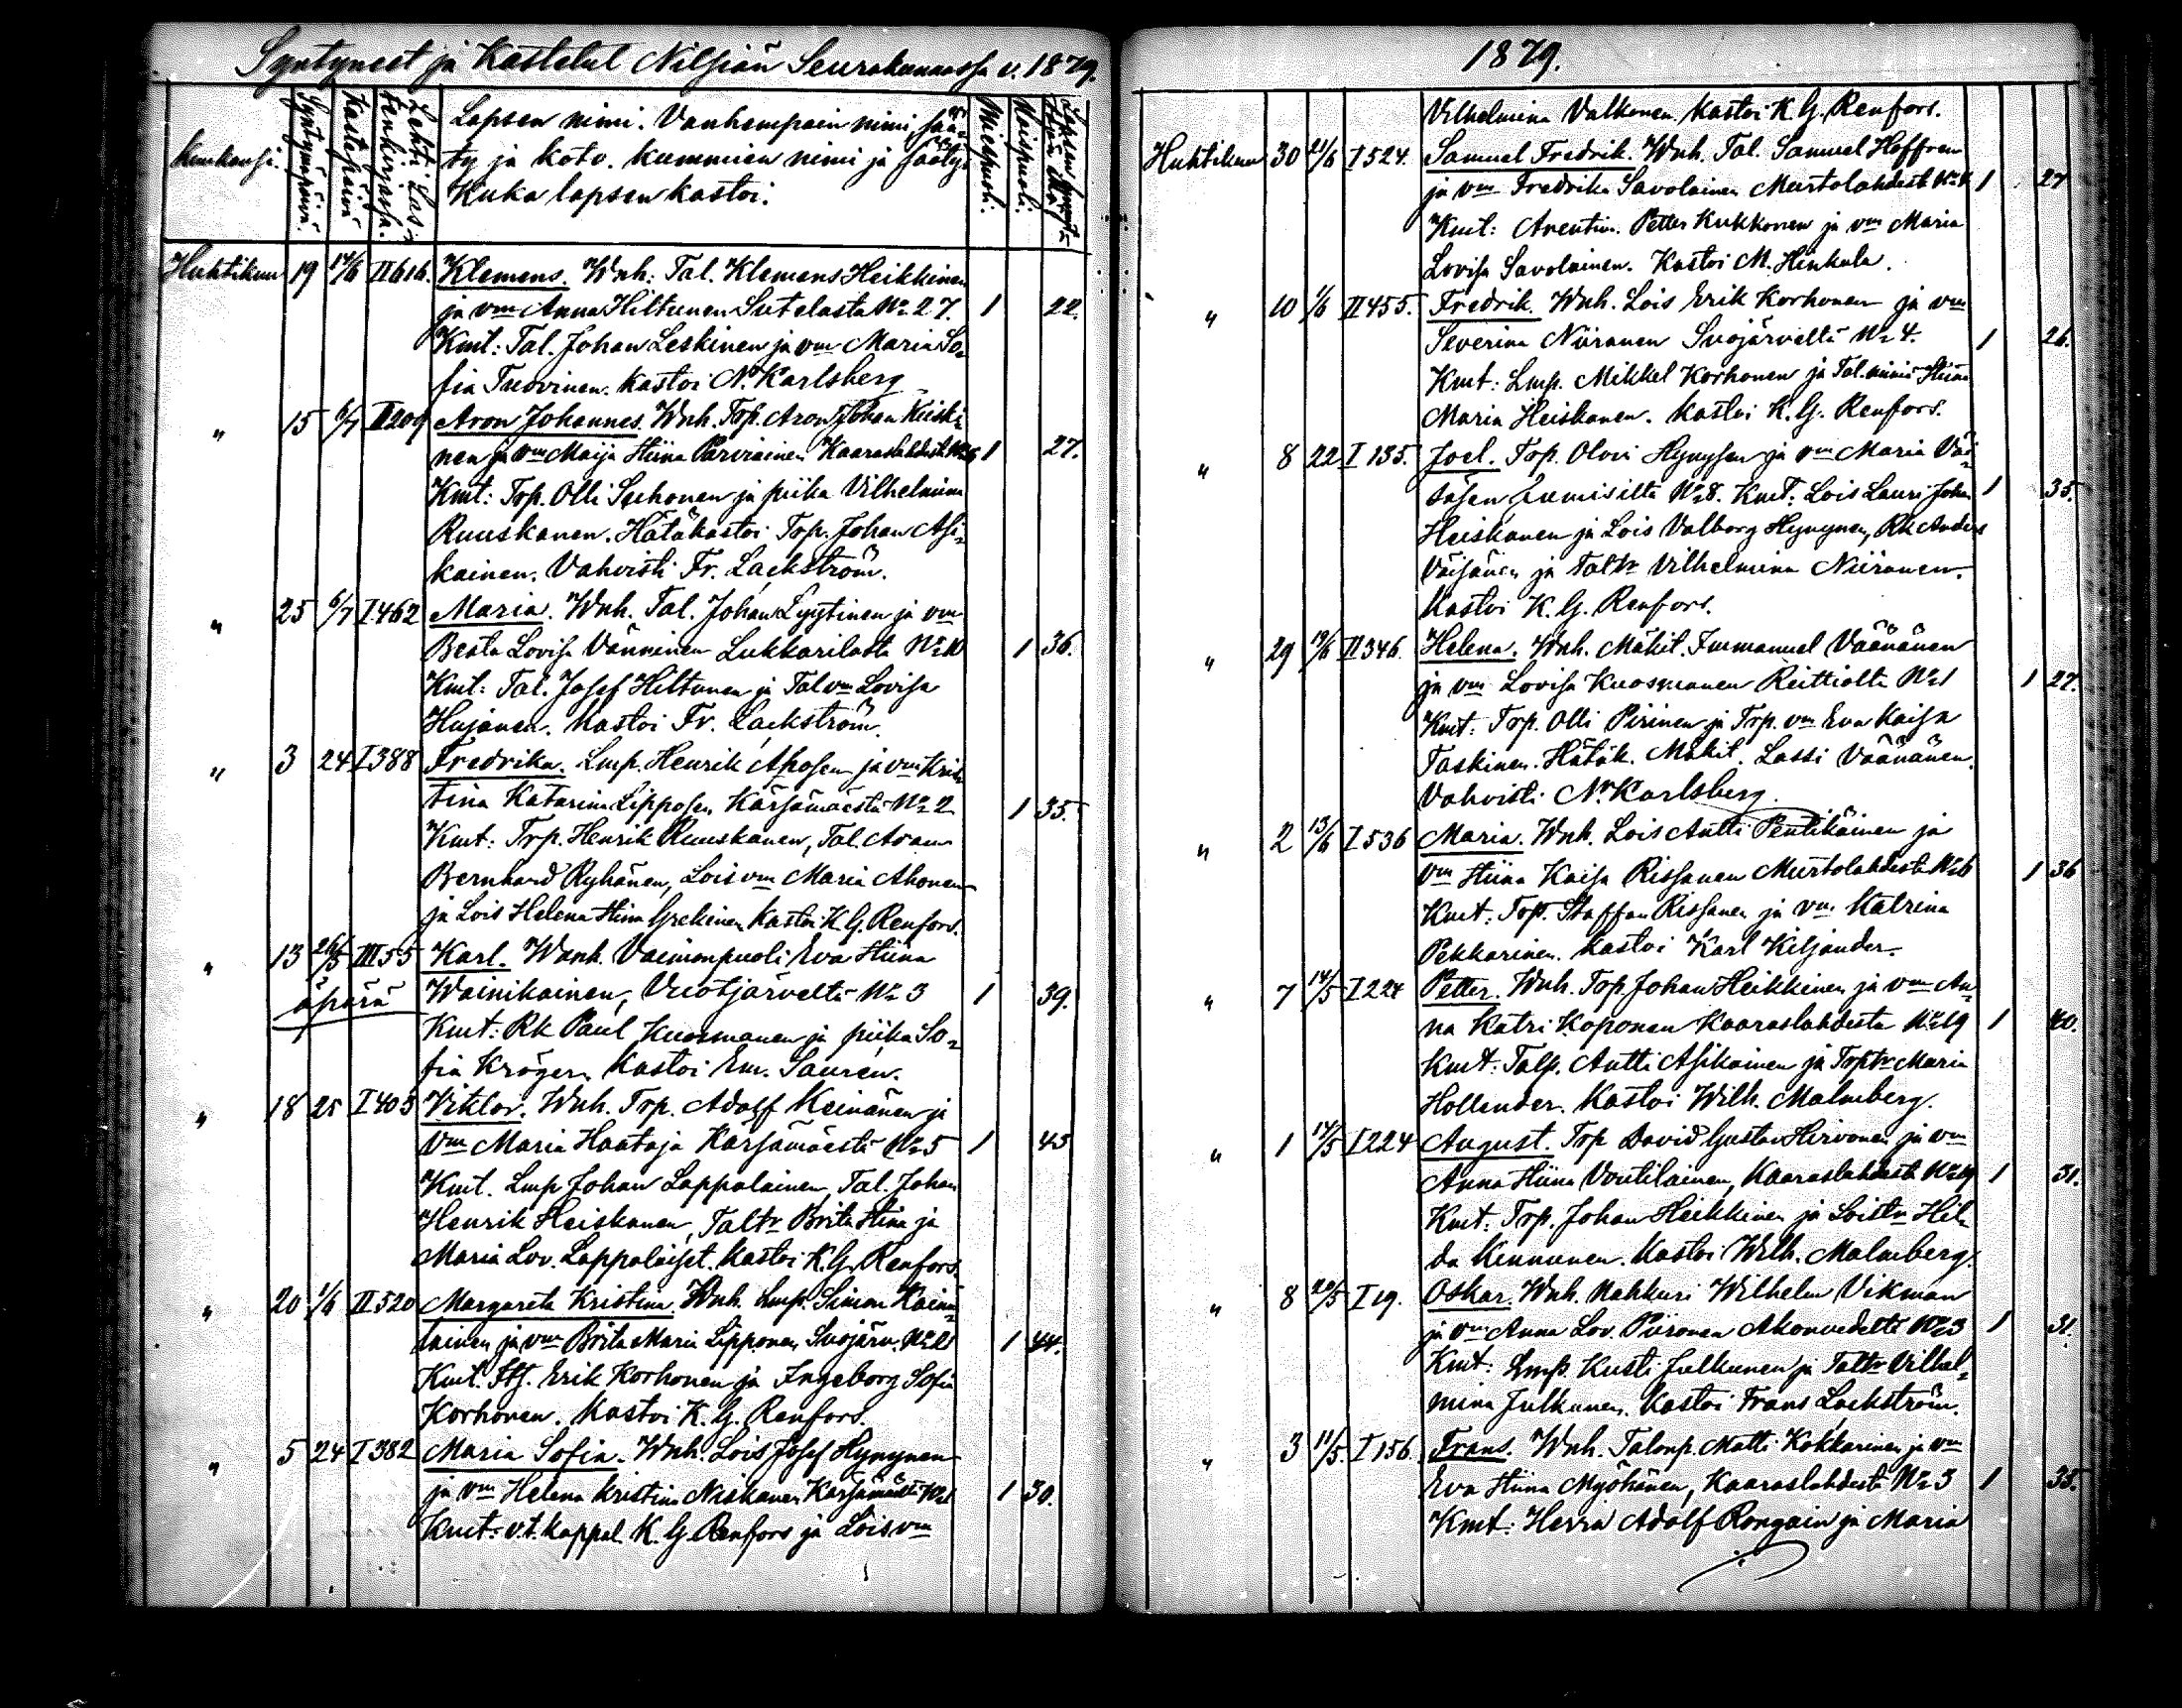 Syntyneet ja Kastetut Nilsiän Seurakunnassa v. 1879.
Kuukausi.
Syntymäpäivä.
Kastepäivä
Lehti Lastenkirjassa.
Lapsen nimi. Vanhempain nimi sää-
ty ja koto. Kummien nimi ja sääty.
Kuka lapsen kastoi.
Miehpuoli.
Vaispuoli.
Huhtikuu 19 14/6 II 616. Klemens. Wnh: Tal. Klemens Heikkinen
ja vm Anna Hiltunen Sutelasta No 27. 1 22.
Kmt: Tal. Johan Leskinen ja vm Maria So-
fia Tuovinen. Kastoi N. Karlsberg
" 15 6/7 II 209 Aron Johannes. Wnh. Trp. Aron Johan Kiiski-
nen ja vm Maija Stiina Parviainen Kaaraslahdesta 1 27.
Kmt: Trp. Olli Suhonen ja piika Vilhelmina
Ruuskanen. Hätäkastoi Trp. Johan Asi-
kainen. Vahvisti Fr. Lackström.
" 25 6/7 I 462 Maria. Wnh. Tal. Johan Lyytinen ja vm
Beata Lovisa Vänninen Lukkarilasta No 10 1 36.
Kmt: Tal. Josef Hiltunen ja Tal vm Lovisa
Hujanen. Kastoi Fr. Lackström.
" 3 24 I 388 Fredrika. Lmp. Henrik Ahosen ja vm Kris-
tina Katarina Lipposen, Kärsämäestä No 2 1 35.
Kmt: Trp. Henrik Ruuskanen, Tal. Aram
Bernhard Ryhänen, Lois vm Maria Ahonen
ja Lois Helena Stiina Grekinen Kastoi K. G. Renfors.
" 13 26/5 III 55 Karl. Wanh. Vaimonpuoli Eva Stiina
äpärä Wainikainen, Vuotjärveltä No 3 1 39.
Kmt: Rk Paul Kuosmanen ja piika So-
fia Kröger. Kastoi Em. Sauren.
" 18 25 I 403 Viktor. Wnh. Trp. Adolf Keinänen ja
vm Maria Haataja Kärsämäestä No 5 1 43
Kmt. Lmp Johan Lappalainen, Tal. Johan
Henrik Heiskanen, Taltr Brita Stina ja
Maria Lov. Lappalaiset. Kastoi K. G. Renfors.
" 20 1/6 II 520 Margareta Kristina. Wnh. Lmp. Simon Kainu-
lainen ja vm Brita Maria Lipponen, Suojärv. No 21 1 44.
Kmt. Erik Korhonen ja Ingeborg Sofia
Korhonen. Kastoi K. G. Renfors.
" 5 24 I 382 Maria Sofia. Wnh. Lois Josef Hynynen
ja vm Helena Kristina Niskanen Kärsämäestä No 1 1 30.
Kmt: v.t. kappal. K. G. Renfors ja Lois vm
1879.
Vilhelmina Valkonen. Kastoi K. G. Renfors.
Huhtikuu 30 21/6 I 524. Samuel Fredrik. Wnh. Tal. Samuel Hoffren
ja vm Fredrika Savolainen Murtolahdesta 1 27
Kmt: Arentim. Petter Kukkonen ja vm Maria
Lovisa Savolainen. Kastoi M. Hinkula.
" 10 1/6 II 455. Fredrik. Wnh. Lois Erik Korhonen ja vm
Severina Niiranen Suojärveltä No 4. 1 26.
Kmt: Lmp. Mikkel Korhonen ja Tal. miniä Stiina
Maria Heiskanen. Kastoi K. G. Renfors.
" 8 22 I 135. Joel. Trp. Olovi Hynysen ja vm Maria Väi-
säsen Lumisilta No 8. Kmt. Lois Lauri Johan 1 35.
Heiskanen ja Lois Valborg Hynynen, Rk Anders
Väisänen ja Taltr Vilhelmina Niiranen.
Kastoi K. G. Renfors.
" 29 19/6 II 346. Helena. Wnh. Mäkit. Immanuel Väänänen
ja vm Lovisa Kuosmanen Reittiolta No 1 1 27.
Kmt: Trp. Olli Pirinen ja Trp. vm Eva Kaisa
Taskinen. Hätäk. Mäkit. Lassi Väänänen.
Vahvisti N. Karlsberg.
" 2 13/6 I 536 Maria. Wnh. Lois Antti Pentikäinen ja
vm Stiina Kaisa Rissanen Murtolahdesta No 6 1 36
Kmt: Trp. Staffan Rissanen ja vm Katrina
Pekkarinen. Kastoi Karl Kiljander.
" 7 14/5 I 224 Petter. Wnh. Trp. Johan Heikkinen ja vm An-
na Katri Koponen Kaaraslahdesta No 19 1 40.
Kmt: Talp. Antti Asikainen ja Trptr Maria
Hollender. Kastoi Wilh. Malmberg.
" 1 14/5 I 224 August. Trp David Gustav Hirvonen ja vm
Anna Stiina Voutilainen, Kaaraslahdesta No 19 1 31.
Kmt: Trp. Johan Heikkinen ja Loistr Hil-
da Kinnunen. Kastoi Wilh. Malmberg.
" 8 20/5 I 19. Oskar. Wnh. Nahkuri Wilhelm Vikman
ja vm Anna Lov. Piironen Akonvedeltä No 3 1 31.
Kmt: Lmp. Kusti Julkunen ja Taltr Vilhel-
mina Julkunen. Kastoi Frans Lackström.
" 3 11/5. I 156. Frans. Wnh. Talonp. Matti Kokkarinen ja vm
Eva Stiina Myöhänen, Kaaraslahdesta No 3 1 35.
Kmt: Herra Adolf Rongain ja Maria